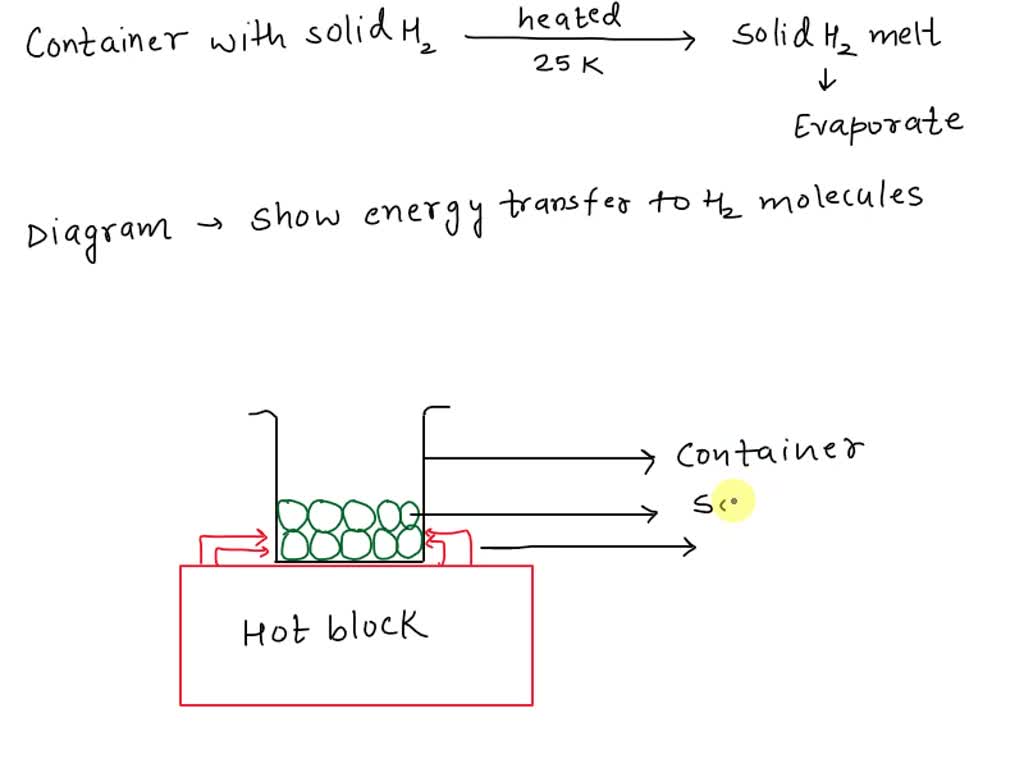 Container with solid H₂ heated 25 K → Solid H₂ melt
↓
Evaporate
Diagram → show energy transfer to H₂ molecules
Container
So
Hot block